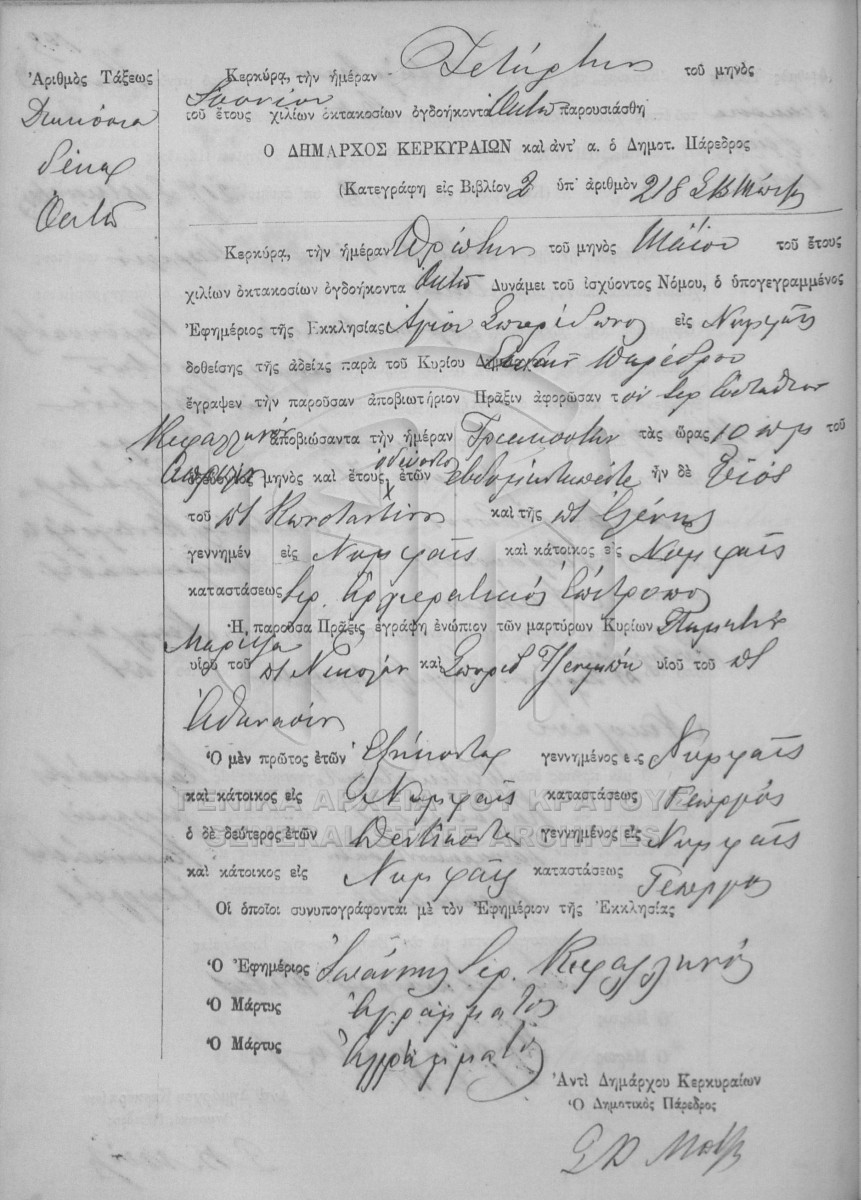 Ἀριθμὸς Τάξεως
Διακόσια
δέκα
Ὀκτὼ
Κερκύρα, τὴν ἡμέραν Τετάρτην τοῦ μηνὸς
Ἰουνίου
τοῦ ἔτους χιλίων ὀκτακοσίων ὀγδοήκοντα Ὀκτὼ παρουσιάσθη
Ο ΔΗΜΑΡΧΟΣ ΚΕΡΚΥΡΑΙΩΝ καὶ ἀντ' α. ὁ Δημοτ. Πάρεδρος
(Κατεγράφη εἰς Βιβλίον 2 ὑπ' ἀριθμὸν 218
Κερκύρα, τὴν ἡμέραν Πρώτην τοῦ μηνὸς Μαΐου τοῦ ἔτους
χιλίων ὀκτακοσίων ὀγδοήκοντα Ὀκτὼ Δυνάμει τοῦ ἰσχύοντος Νόμου, ὁ ὑπογεγραμμένος
Ἐφημέριος τῆς Ἐκκλησίας Ἁγίου Σπυρίδωνος εἰς Νυμφαῖς
δοθείσης τῆς ἀδείας παρὰ τοῦ Κυρίου Παρέδρου
ἔγραψεν τὴν παροῦσαν ἀποβιωτήριον Πρᾶξιν ἀφορῶσαν τὸν ἱερ Εὐστάθιον
Κεφαλληνὸν ἀποβιώσαντα τὴν ἡμέραν Τριακοστὴν τὰς ὥρας 10 π.μ. τοῦ
Ἀπριλίου μηνὸς καὶ ἔτους ὁδεύοντος ἐτῶν ἑβδομήκοντα πέντε ἦν δὲ Υἱὸς
τοῦ πτ Κωνσταντίνου καὶ τῆς πτ Ἑλένης
γεννημέν εἰς Νυμφαῖς καὶ κάτοικος εἰς Νυμφαῖς
καταστάσεως Ἱερ. Ἀρχιερατικὸς Ἐπίτροπος
Ἡ παροῦσα Πρᾶξις ἐγράφη ἐνώπιον τῶν μαρτύρων Κυρίων Σταματίου
υἱοῦ τοῦ πτ Νικολάου καὶ Σπυρίδ υἱοῦ τοῦ πτ
Ἀθανασίου
Ὁ μὲν πρῶτος ἐτῶν Ἑξήκοντα γεννημένος εἰς Νυμφαῖς
καὶ κάτοικος εἰς Νυμφαῖς καταστάσεως Γεωργὸς
ὁ δὲ δεύτερος ἐτῶν Πεντήκοντα γεννημένος εἰς Νυμφαῖς
καὶ κάτοικος εἰς Νυμφαῖς καταστάσεως Γεωργὸς
Οἱ ὁποῖοι συνυπογράφονται μὲ τὸν Ἐφημέριον τῆς Ἐκκλησίας
Ὁ Ἐφημέριος Ἰωάννης Ἱερ. Κεφαλληνός
Ὁ Μάρτυς Ἀγράμματος
Ὁ Μάρτυς Ἀγράμματος
Ἀντὶ Δημάρχου Κερκυραίων
Ὁ Δημοτικὸς Πάρεδρος
ΓΕΝΙΚΑ ΑΡΧΕΙΑ ΤΟΥ ΚΡΑΤΟΥΣ
GENERAL STATE ARCHIVES